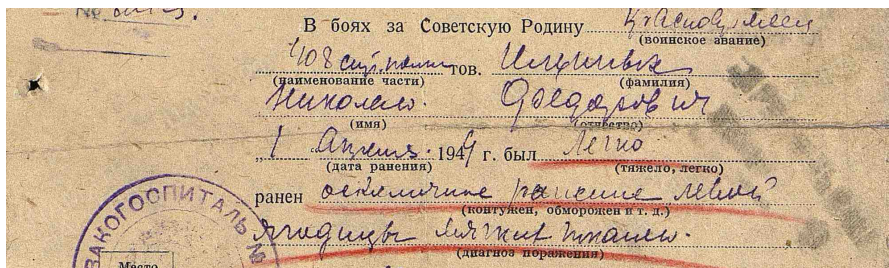 В боях за Советскую Родину
(воинское звание)
408 тов.
(наименование части) (фамилия)
Николай Федорович
(имя) (отчество)
„1 Апреля 194 г. был легко
(дата ранения) (тяжело, легко)
ранен осколочное ранение левой
(контужен, обморожен и т. д.)
ягодицы мягких тканей.
(диагноз поражения)
ЭВАКОГОСПИТАЛЬ №
Место